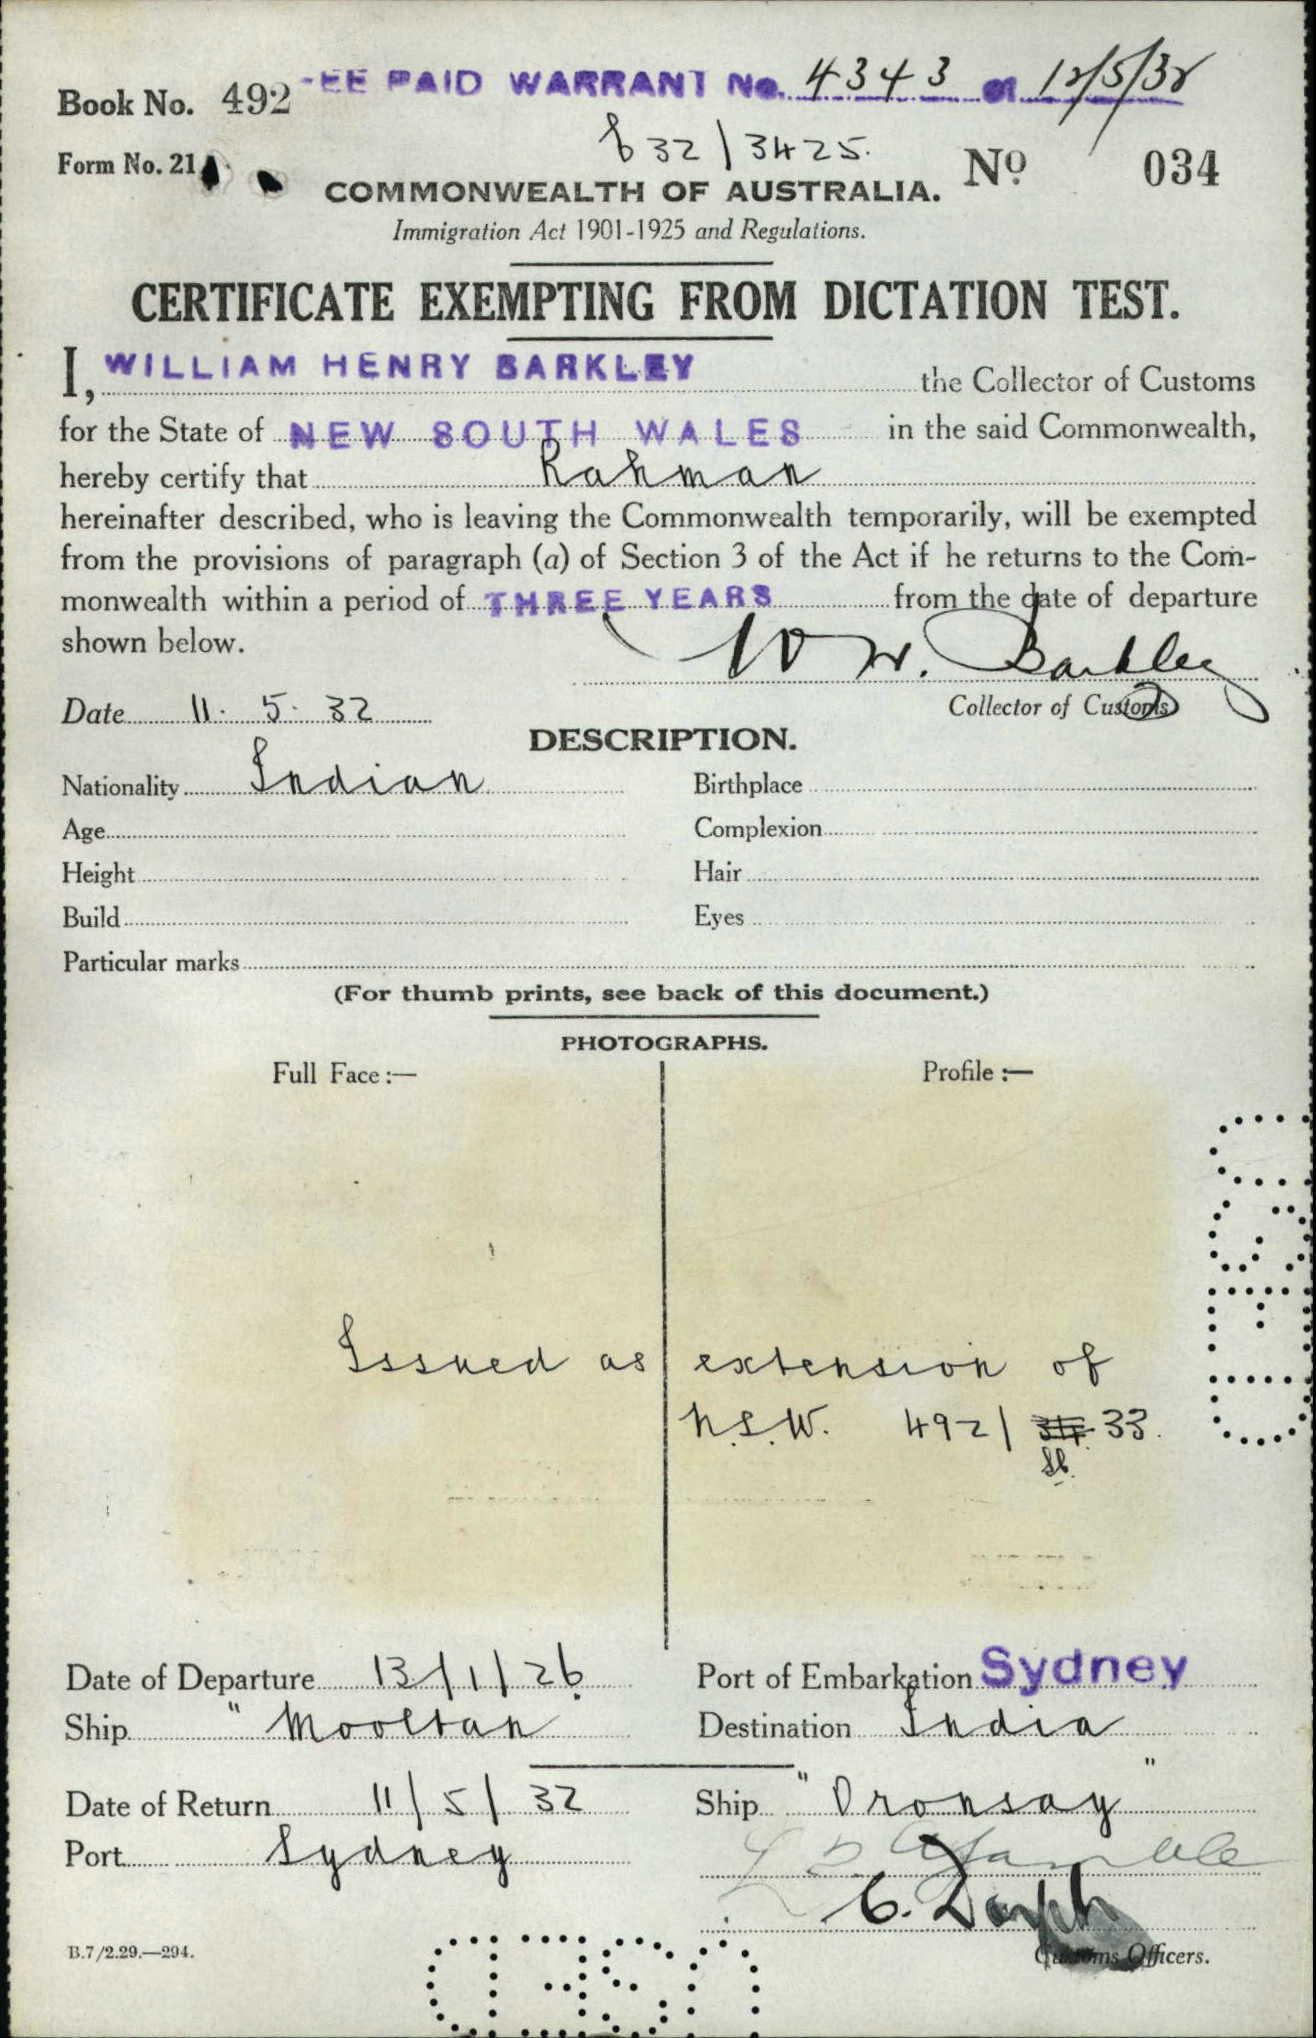 Book No. 492 EE PAID WARRANT No. 4343 of 12/5/32
32/3425.
Form No. 21 No 034
COMMONWEALTH OF AUSTRALIA.
Immigration Act 1901-1925 and Regulations.
CERTIFICATE EXEMPTING FROM DICTATION TEST.
I, WILLIAM HENRY BARKLEY the Collector of Customs
for the State of NEW SOUTH WALES in the said Commonwealth,
hereby certify that Rahman
hereinafter described, who is leaving the Commonwealth temporarily, will be exempted
from the provisions of paragraph (a) of Section 3 of the Act if he returns to the Com-
monwealth within a period of THREE YEARS from the date of departure
shown below.
W H. Barkley
Date 11. 5. 32 Collector of Customs
DESCRIPTION.
Nationality Indian Birthplace
Age Complexion
Height Hair
Build Eyes
Particular marks
(For thumb prints, see back of this document.)
PHOTOGRAPHS.
Full Face :— Profile :—
Issued as extension of
N.S.W. 492/ 33.
Date of Departure 13/1/26. Port of Embarkation Sydney
Ship "Mooltan Destination India
Date of Return 11/5/32 Ship "Oronsay"
Port Sydney
B.7/2.29.—294. Customs Officers.
USED
USED